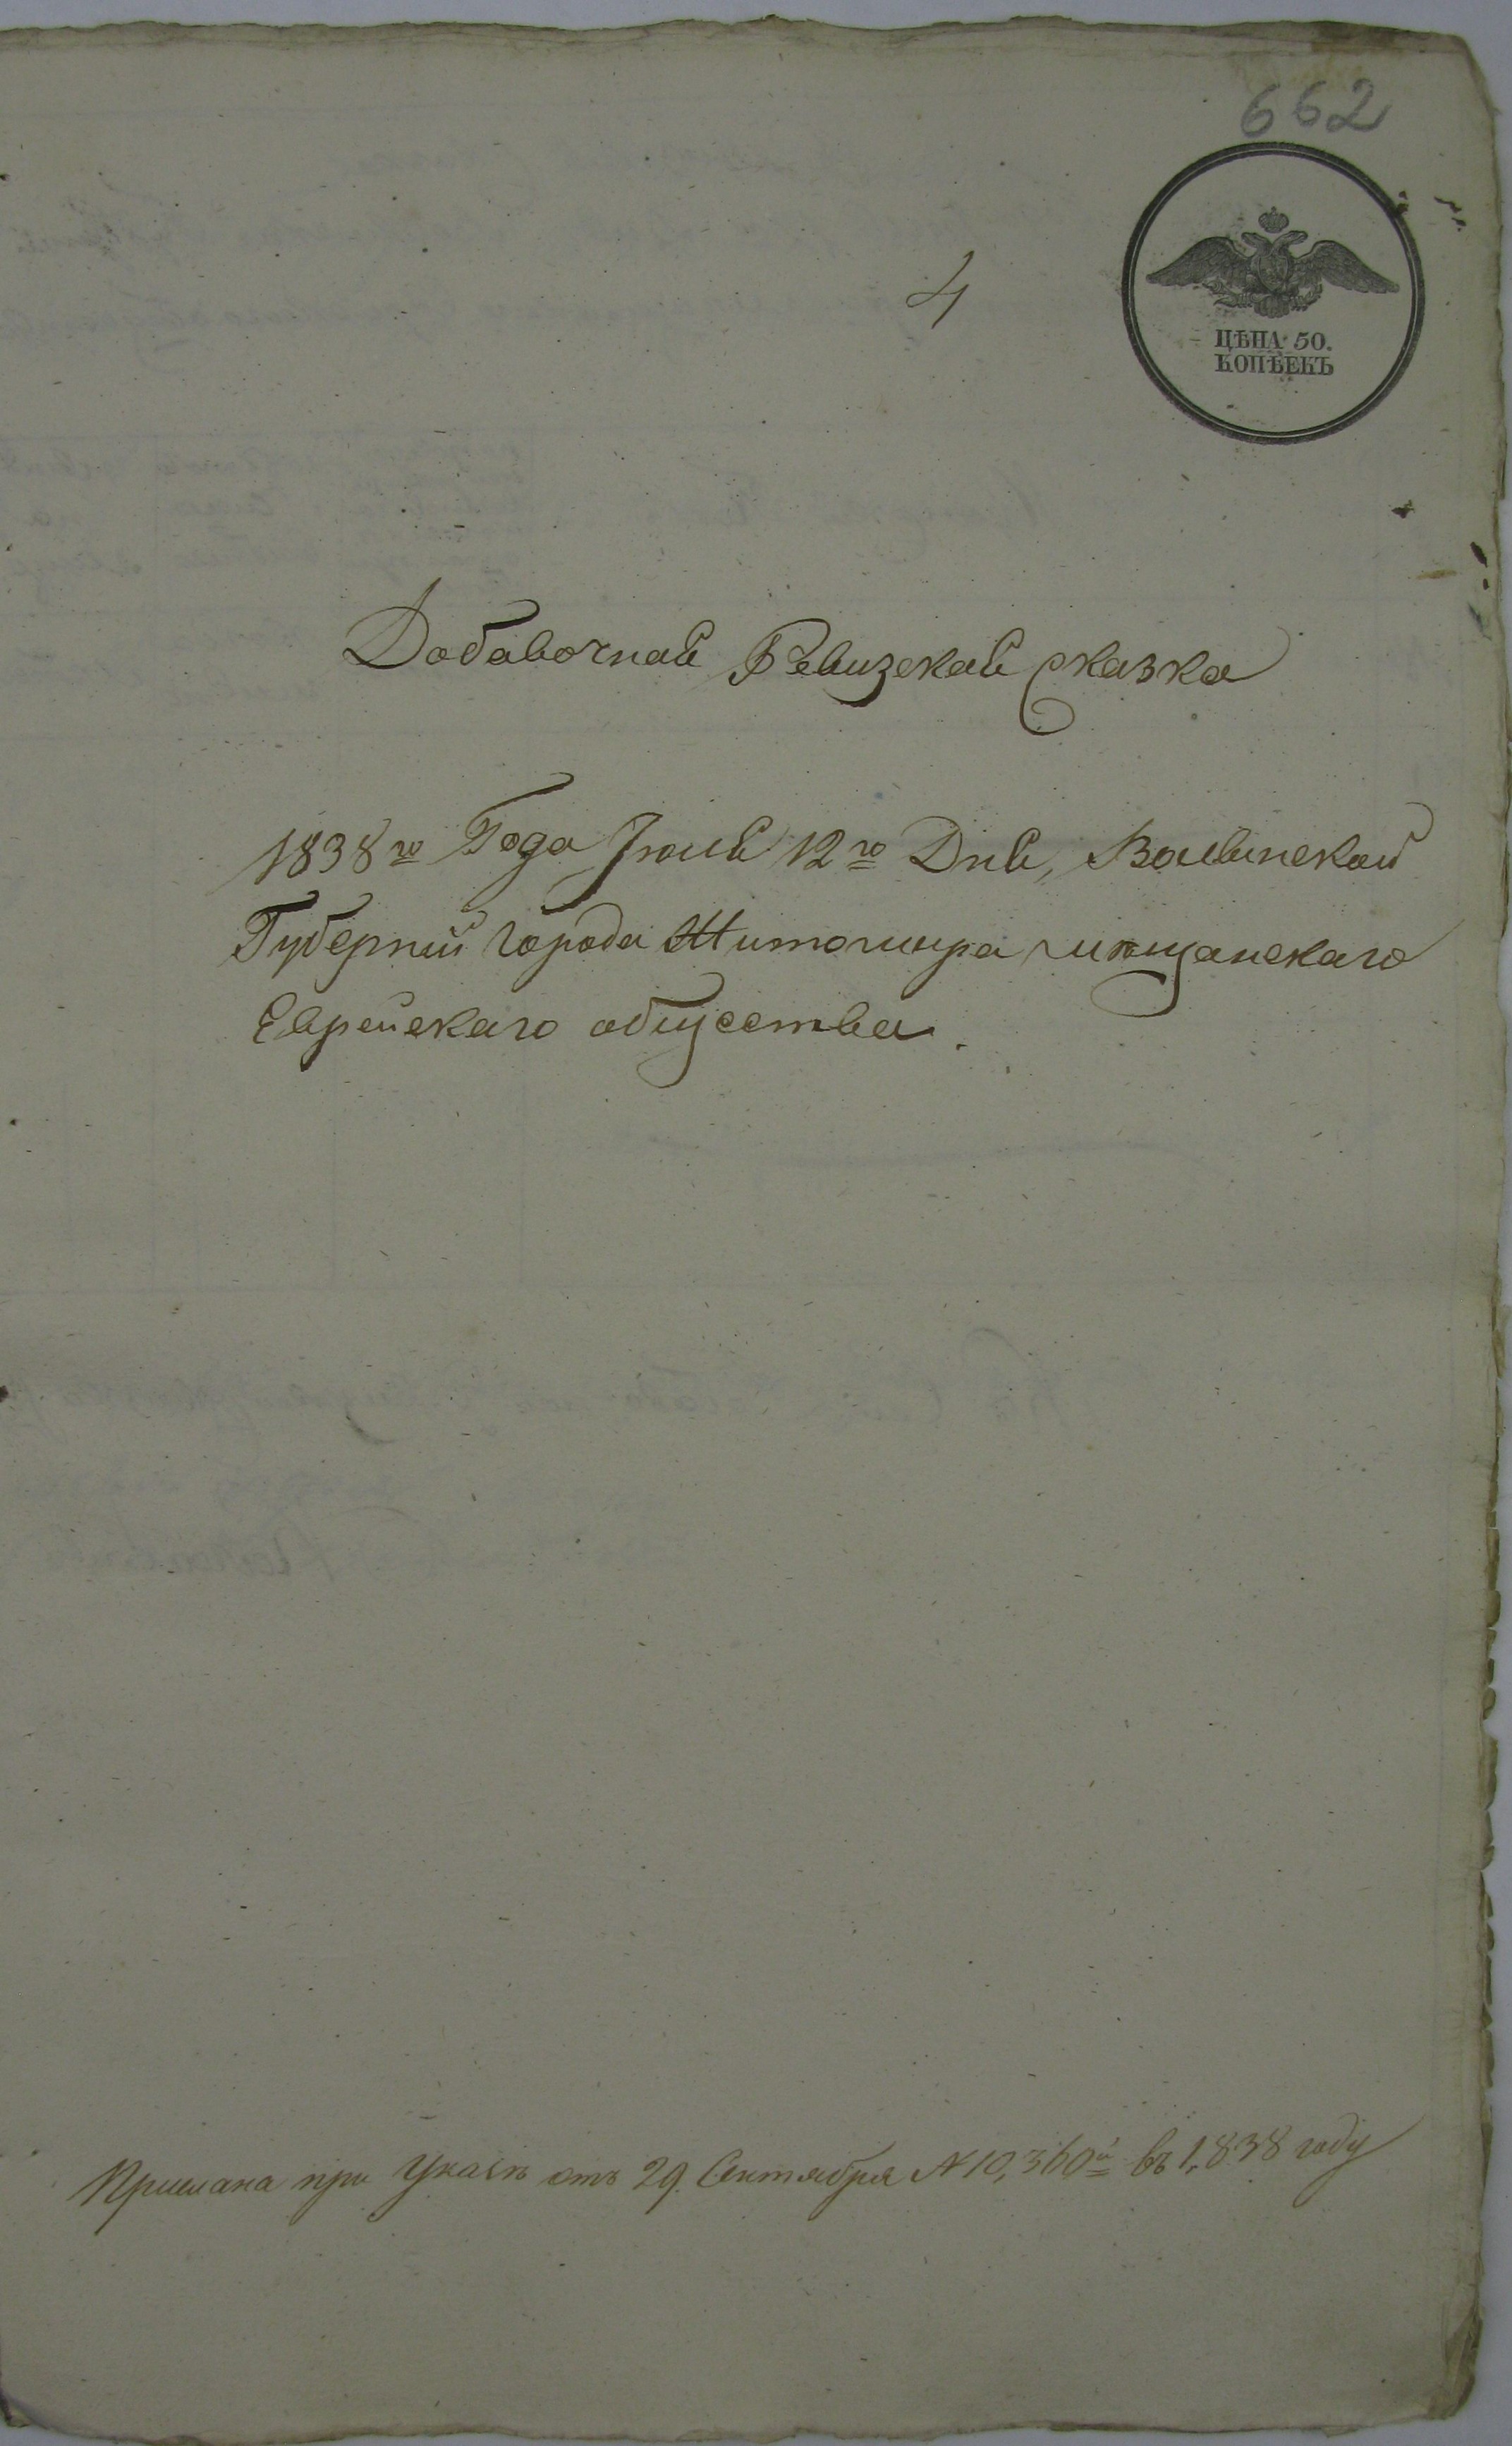 662
4
ЦѢНА 50.
КОПѢЕКЪ
Добавочная Ревизская сказка
1838го Года Июля 12го Дня, Волынской
Губернии Города Житомира мѣщанскаго
Еврейскаго общества.
Прислана при Указѣ отъ 29. Сентября № 10,360й въ 1,838 году